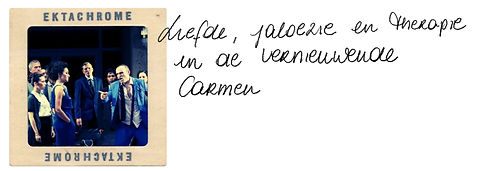 EKTACHROME
Liefde, jaloezie en therapie
in de vernieuwende
Carmen
EKTACHROME